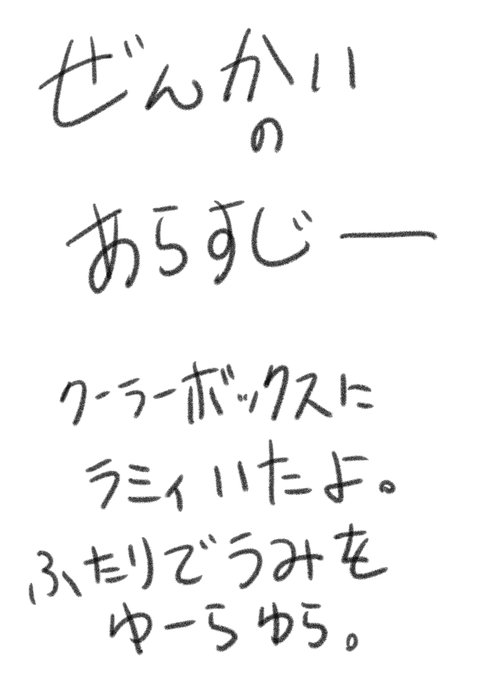 ぜんかい
の
あらすじー
クーラーボックスに
ラミィいたよ。
ふたりでうみを
ゆーらゆら。